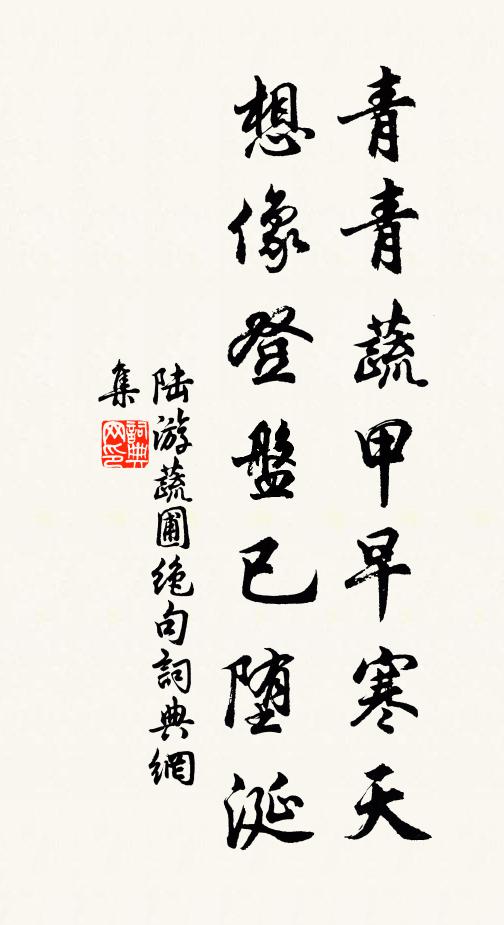 青青蔬甲早寒天
想像登盤已堕涎
陆游蔬圃绝句詞典網
集
詞典网印